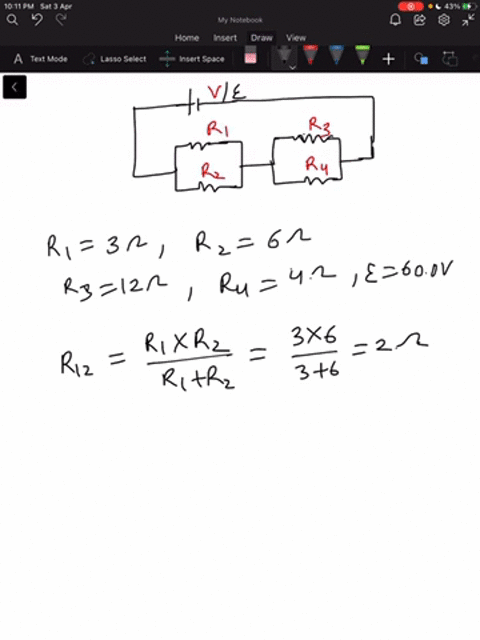 10:11 PM Sat 3 Apr
43%
My Notebook
Home Insert Draw View
A Text Mode Lasso Select Insert Space
V/ε
R1
R3
R2
R4
R1 = 3Ω, R2 = 6Ω
R3 = 12Ω, R4 = 4Ω, ε = 60.0V
R12 = R1 X R2 / R1 + R2 = 3 X 6 / 3 + 6 = 2 Ω